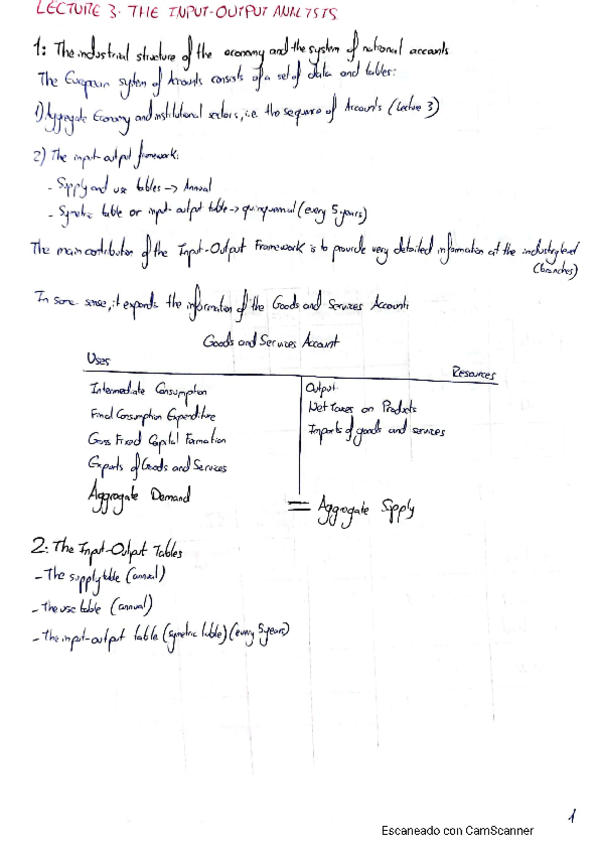 LECTURE 3. THE INPUT-OUTPUT ANALYSIS
1: The industrial structure of the economy and the system of national accounts
The European system of Accounts consists of a set of data and tables:
1) Aggregate Economy and institutional sectors, i.e. the sequence of Accounts (Lecture 3)
2) The input-output framework:
- Supply and use tables -> Annual
- Symetric table or input-output table -> quinquennual (every 5 years)
The main contribution of the Input-Output Framework is to provide very detailed information at the industry level
(branches)
In some sense, it expands the information of the Goods and Services Account:
Goods and Services Account
Uses
Resources
Intermediate Consumption
Output
Final Consumption Expenditure
Net taxes on Products
Gross Fixed Capital Formation
Imports of goods and services
Exports of Goods and Services
Aggregate Demand = Aggregate Supply
2: The Input-Output Tables
- The supply table (annual)
- The use table (annual)
- The input-output table (symetric table) (every 5 years)
1
Escaneado con CamScanner